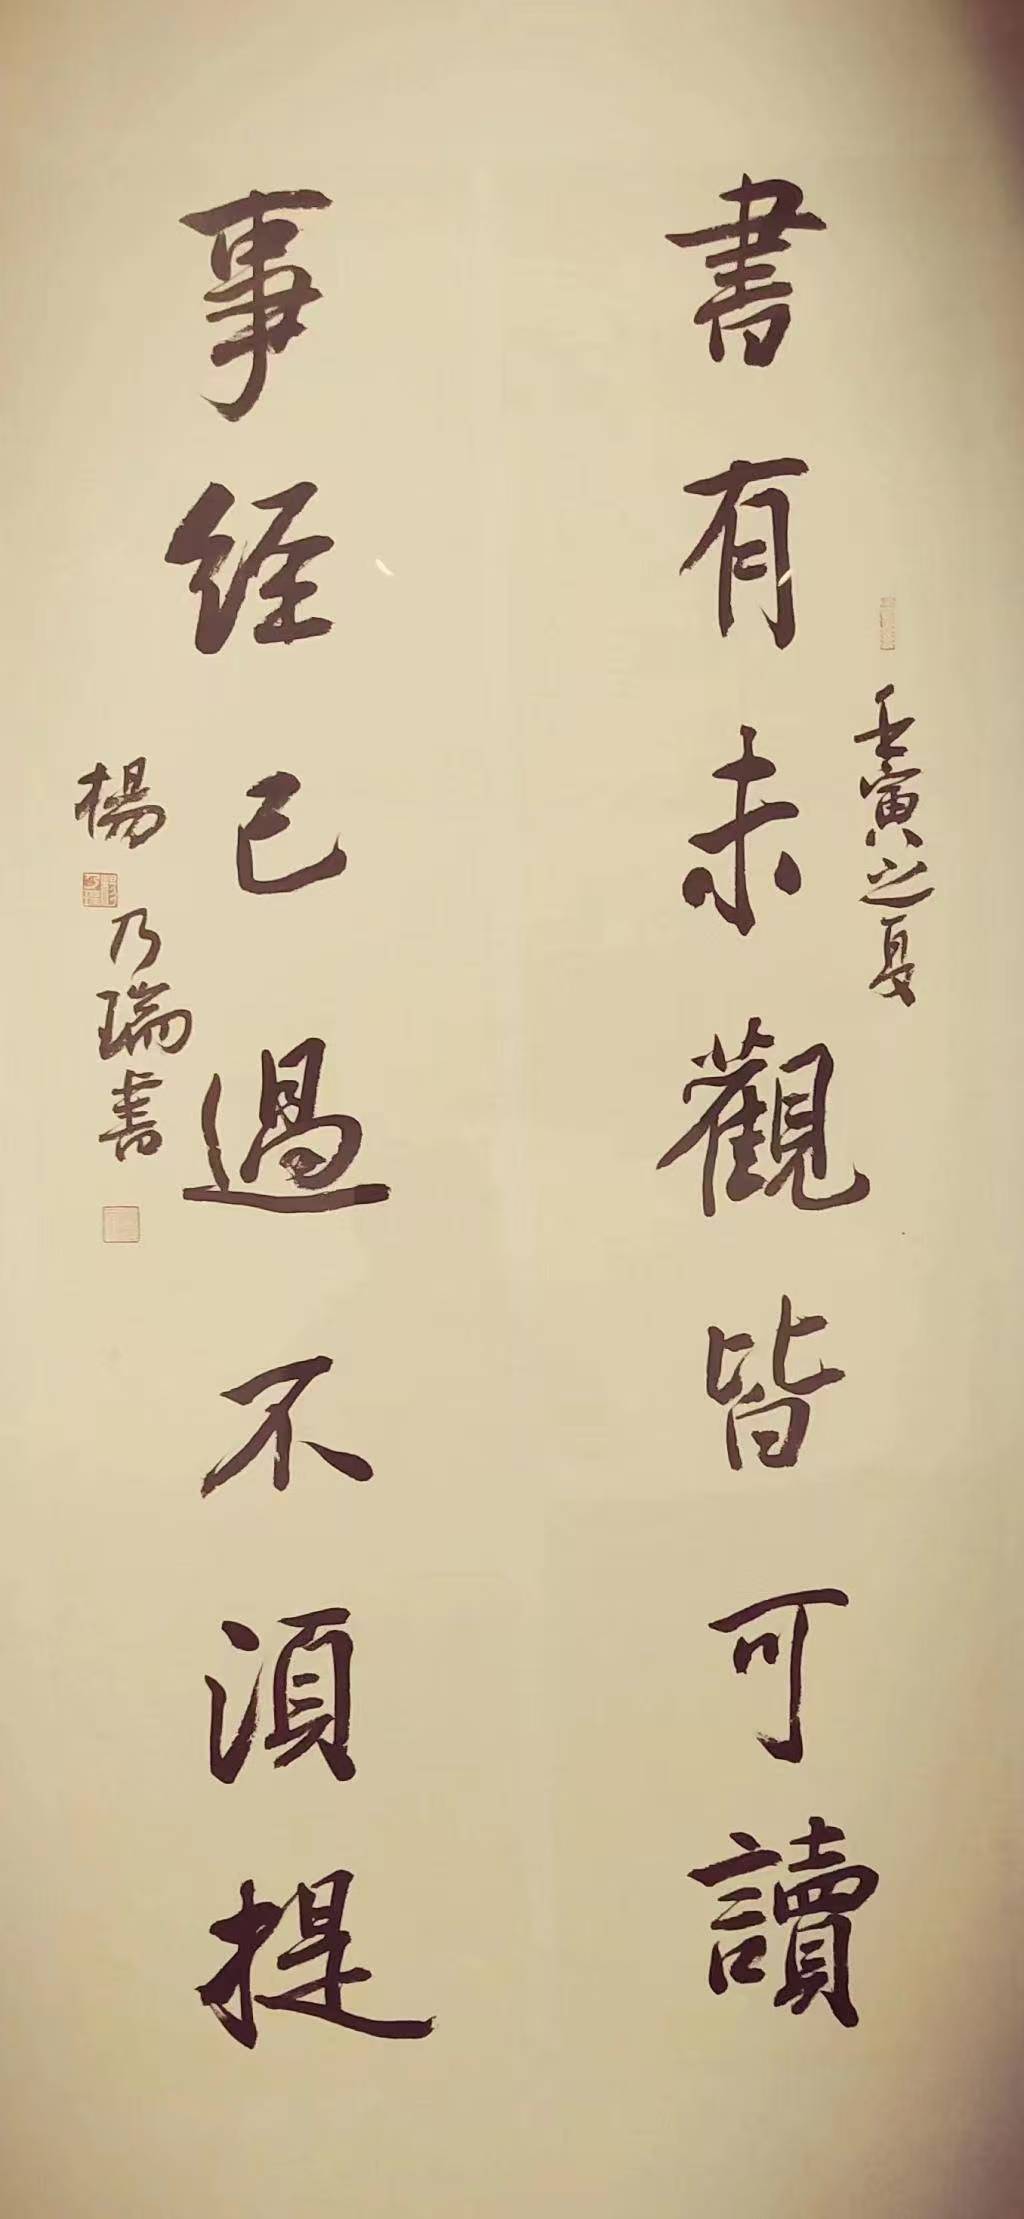 壬寅之夏
書有未觀皆可讀
事經已過不須提
楊乃瑞書